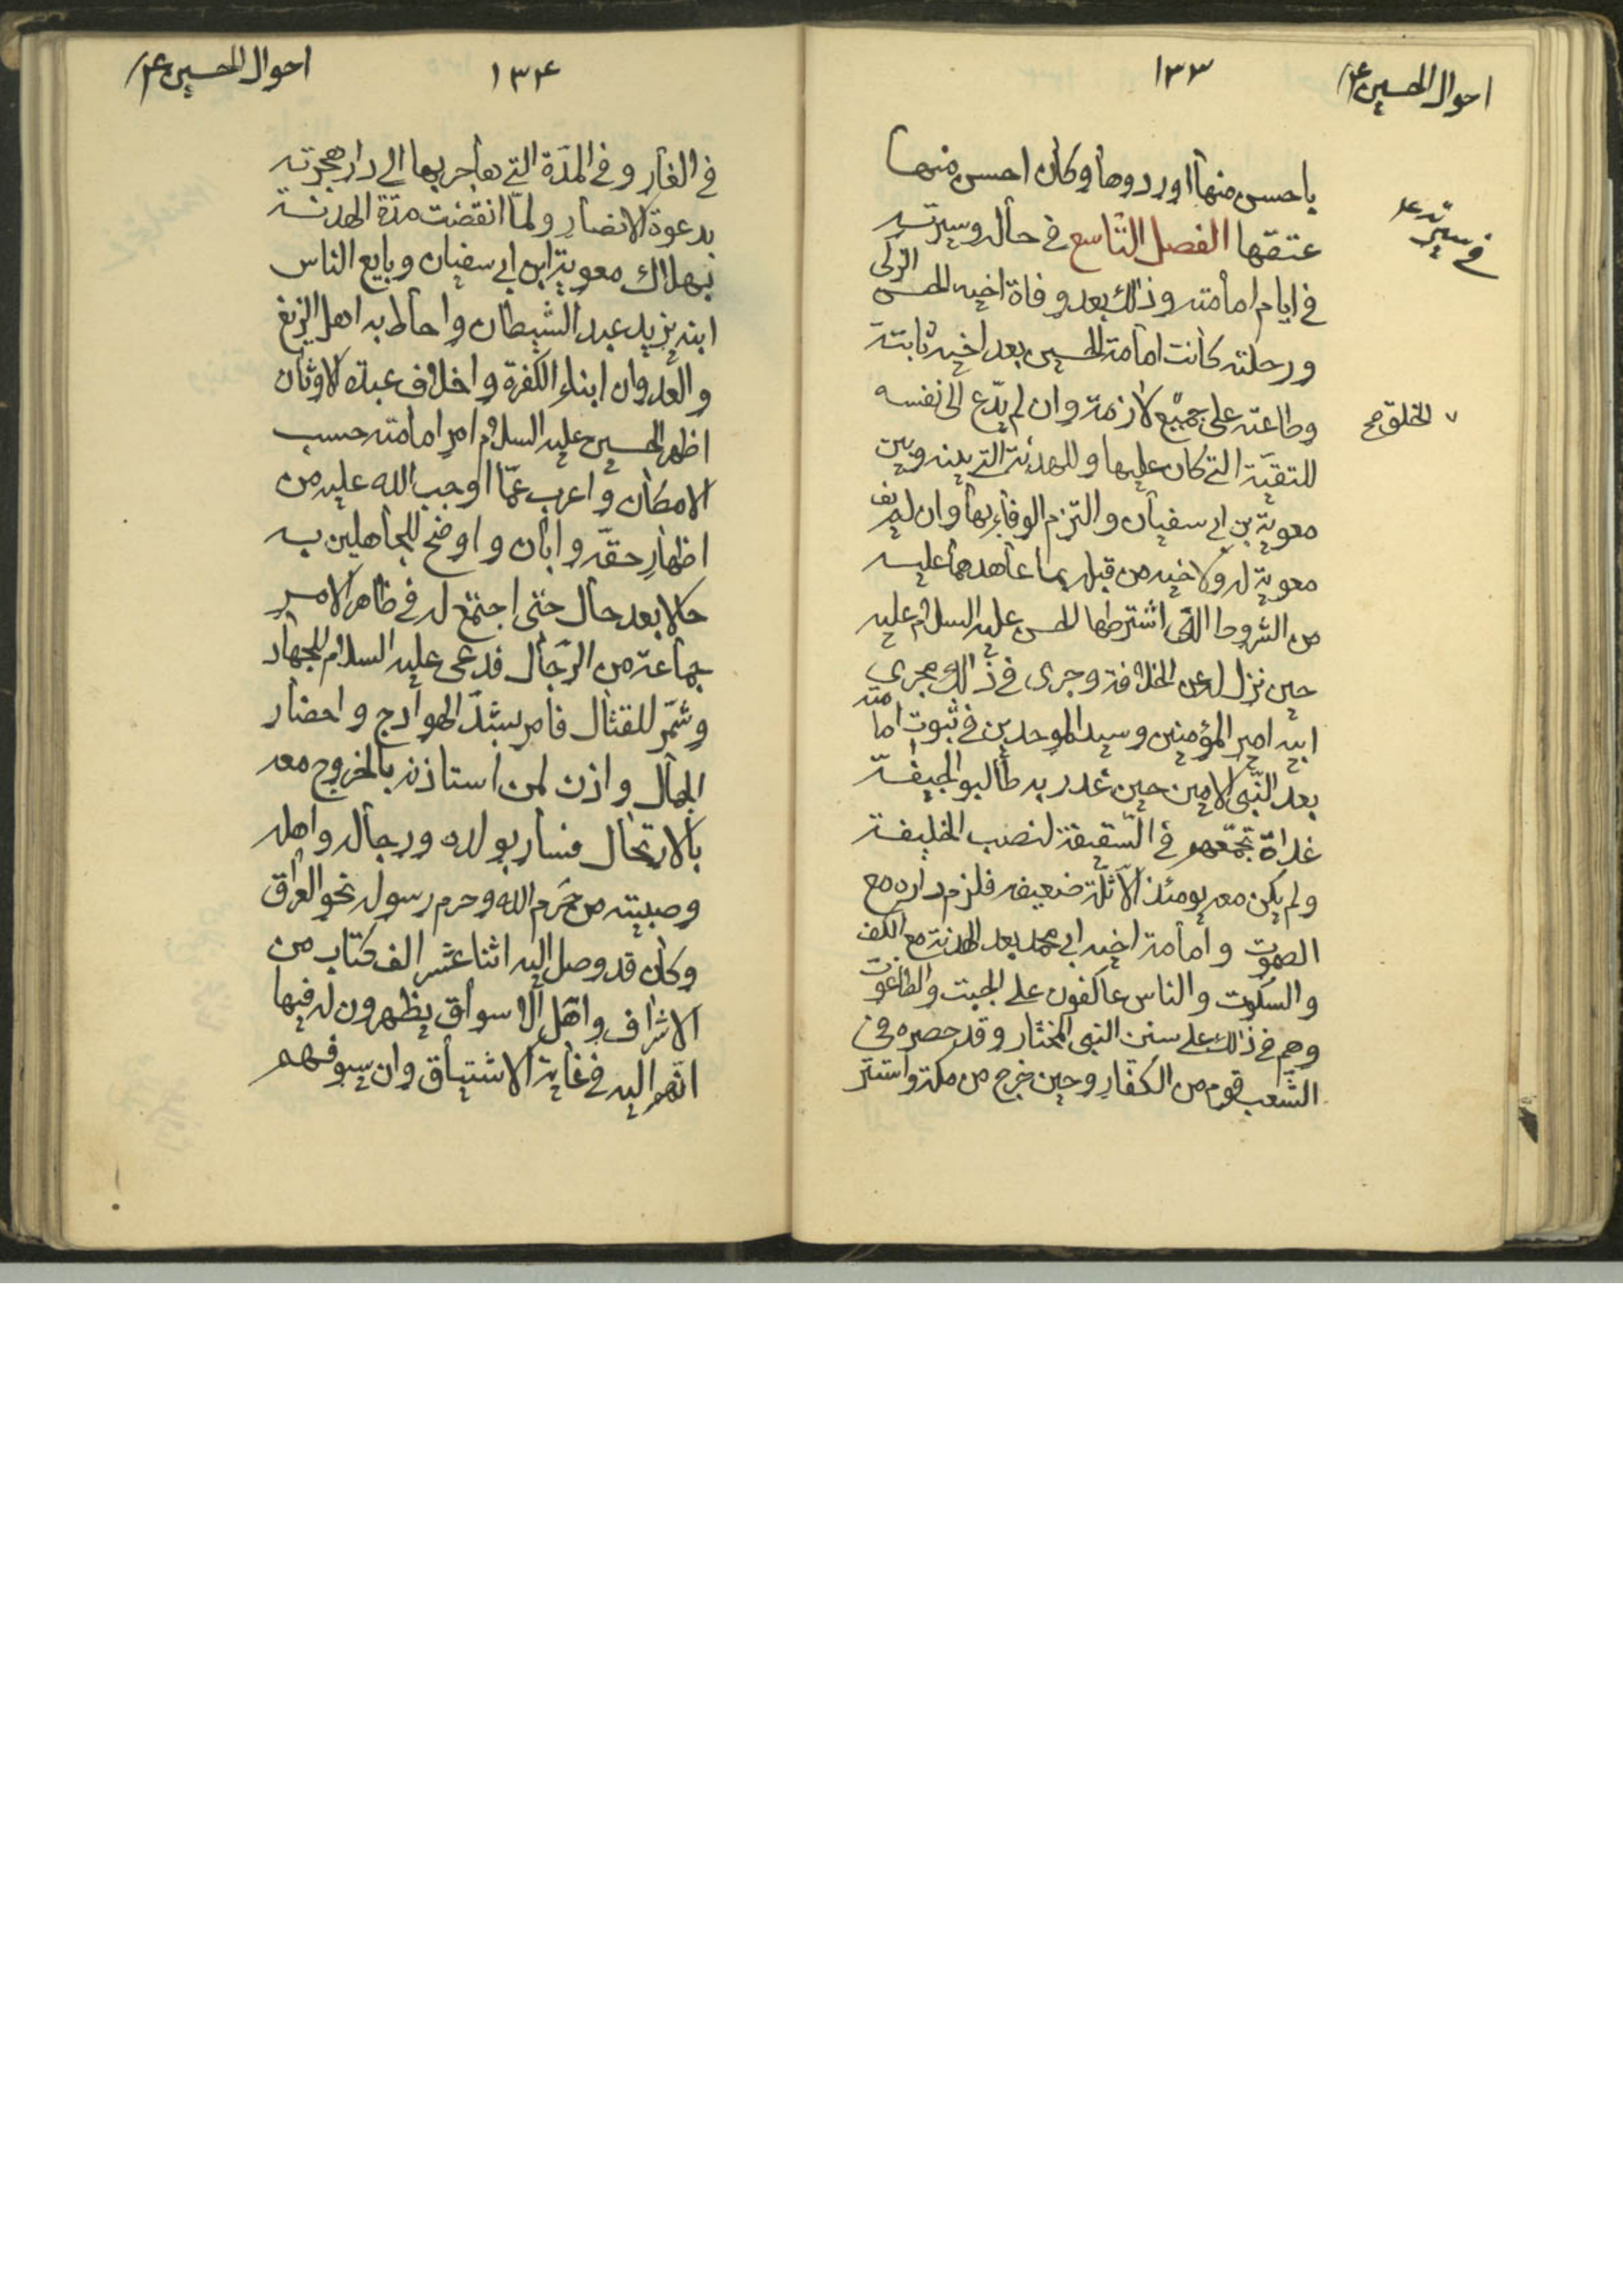 احوال الحسين ع
١٣٣
باحسن منها اوردوها وكان احسن منها
عتقها الفصل التاسع في حاله وسيرته
في سيرته ع
في ايام امامته وذلك بعد وفاة اخيه الحسن الزكي
ورحلته كانت امامة الحسين بعد اخيه ثابتة
وطاعته على جميع لازمة وان لم يدّع الى نفسه
٧ الخلق صح
للتقيّة التي كان عليها وللهدنة التي بينه وبين
معوية بن ابي سفيان والتزم الوفاء بها وان لم يف
معوية له ولاخيه من قبله بما عاهدهما عليه
من الشروط اللتى اشترطها الحسن عليه السلام عليه
حين نزل له عن الخلافة وجرى في ذالك مجرى
ابيه امير المؤمنين وسيد الموحدين في ثبوت امامته
بعد النّبى الامين حين غدر به طالبوا الجيفة
غداة تجمّعهم في السّقيفة لنصب الخليفة
ولم يكن معه يومئذ الّا ثلّة ضعيفه فلزم داره مع
الصموت وامامة اخيه ابي محمد بعد الهدنة مع الكف
والسكوت والناس عاكفون على الجبت والطاغوت
وهم في ذالك على سنن النبى المختار وقد حصره في
الشّعب قوم من الكفّار وحين خرج من مكة واستتر
احوال الحسين ع
١٣٤
في الغار وفي المدّة التي هاجر بها الى دار هجرته
بدعوة الانصار ولمّا انقضت مدّة الهدنة
بهلاك معوية ابن ابي سفيان وبايع الناس
ابنه يزيد عبد الشيطان واحاط به اهل الزيغ
والعدوان ابناء الكفرة واخلاف عبدة الاوثان
اظهر الحسين عليه السلام امر امامته حسب
الامكان واعرب عمّا اوجب الله عليه من
اظهار حقّه وابان واوضح للجاهلين به
حالا بعد حال حتى اجتمع له في ظاهر الامر
جماعة من الرّجال فدعى عليه السلام للجهاد
وشمّر للقتال فامر بشدّ الهوادج واحضار
الجمال واذن لمن استاذنه بالخروج معه
بالارتحال فسار بولده ورجاله واهله
وصبيته من حَرَم الله وحرم رسوله نحو العراق
وكان قد وصل اليه اثنا عشر الف كتاب من
الاشراف واهل الاسواق يظهرون له فيها
انّهم اليه في غاية الاشتياق وان سيوفهم